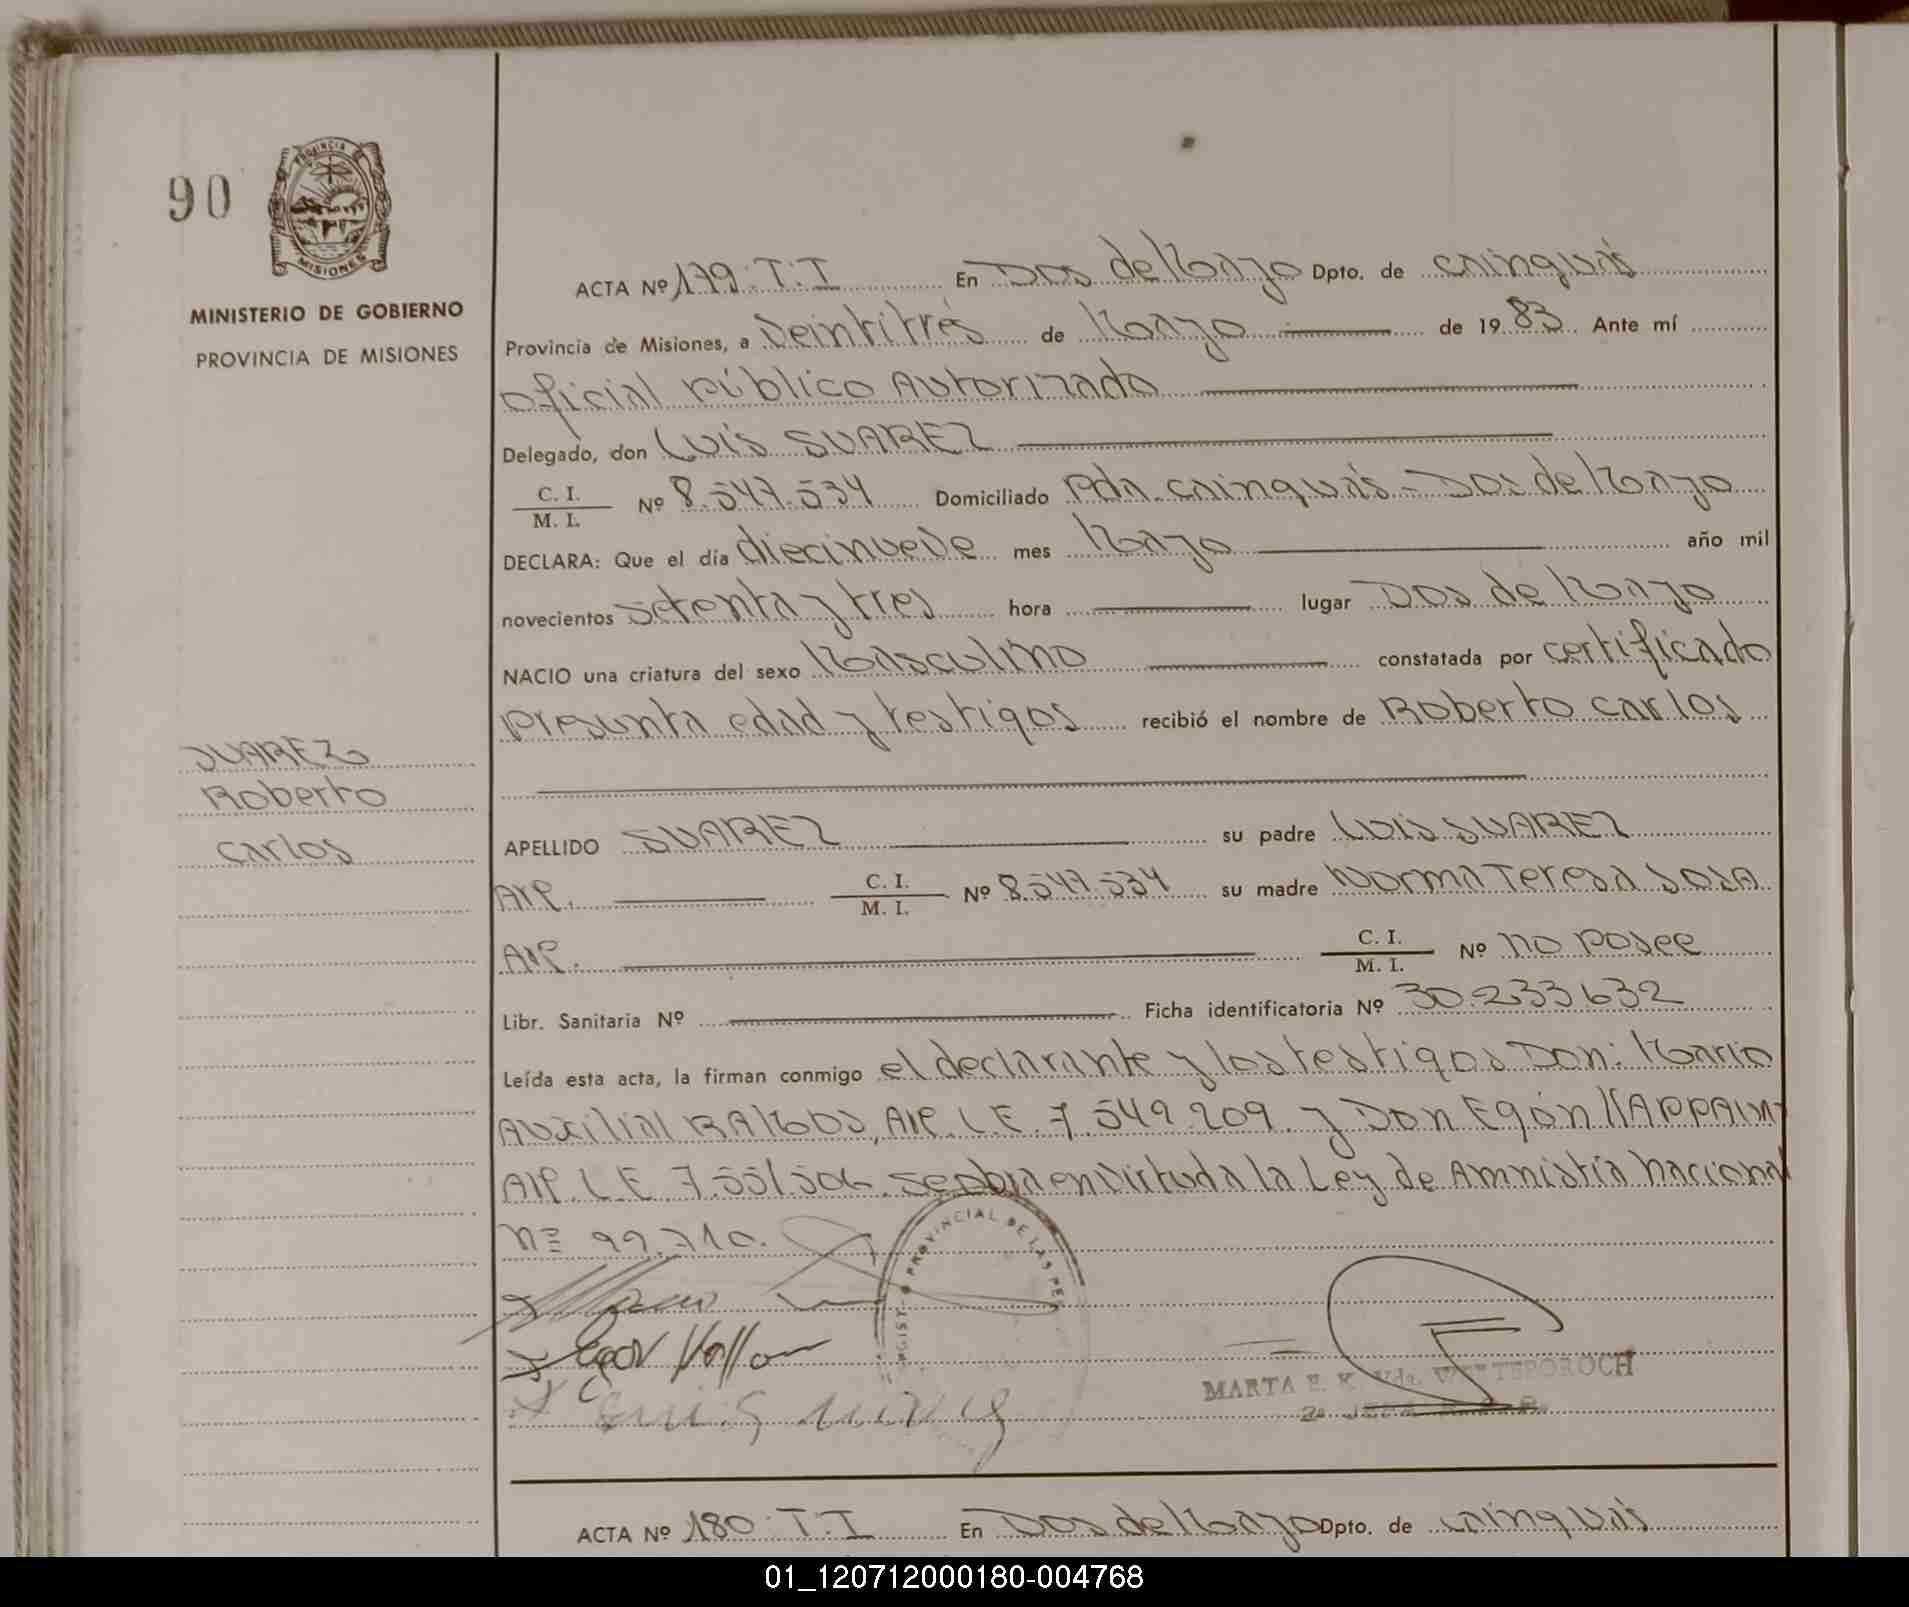 90
PROVINCIA DE
MISIONES
MINISTERIO DE GOBIERNO
PROVINCIA DE MISIONES
ACTA Nº 179. T: I En Dos de Mayo Dpto. de Cainguás
Provincia de Misiones, a Veintitrés de Mayo de 1983. Ante mí
Oficial Público Autorizado
Delegado, don Luis SUAREZ
C. I.
M. I. Nº 8.547.534 Domiciliado Pda. Cainguás - Dos de Mayo
DECLARA: Que el día diecinueve mes Mayo año mil
novecientos setenta y tres hora lugar Dos de Mayo
NACIO una criatura del sexo Masculino constatada por certificado
presunta edad y testigos recibió el nombre de Roberto Carlos
SUAREZ
Roberto
Carlos
APELLIDO SUAREZ su padre Luis SUAREZ
Arg. C. I.
M. I. Nº 8.547.534 su madre Norma Teresa SOSA
Arg. C. I.
M. I. Nº no posee
Libr. Sanitaria Nº Ficha identificatoria Nº 30.233.632
Leída esta acta, la firman conmigo el declarante y los testigos Don: Mario
Auxilial RAMOS, Arg. L.E. 7.549.209. y Don Egón
Arg. L.E. 7.551.506. se obra en virtud a la Ley de Amnistía Nacional
Nº 22.710.
PROVINCIAL DE LAS PE
MARTA E. K. Vda.
ACTA Nº 180. T: I En Dos de Mayo Dpto. de Cainguás
01_120712000180-004768